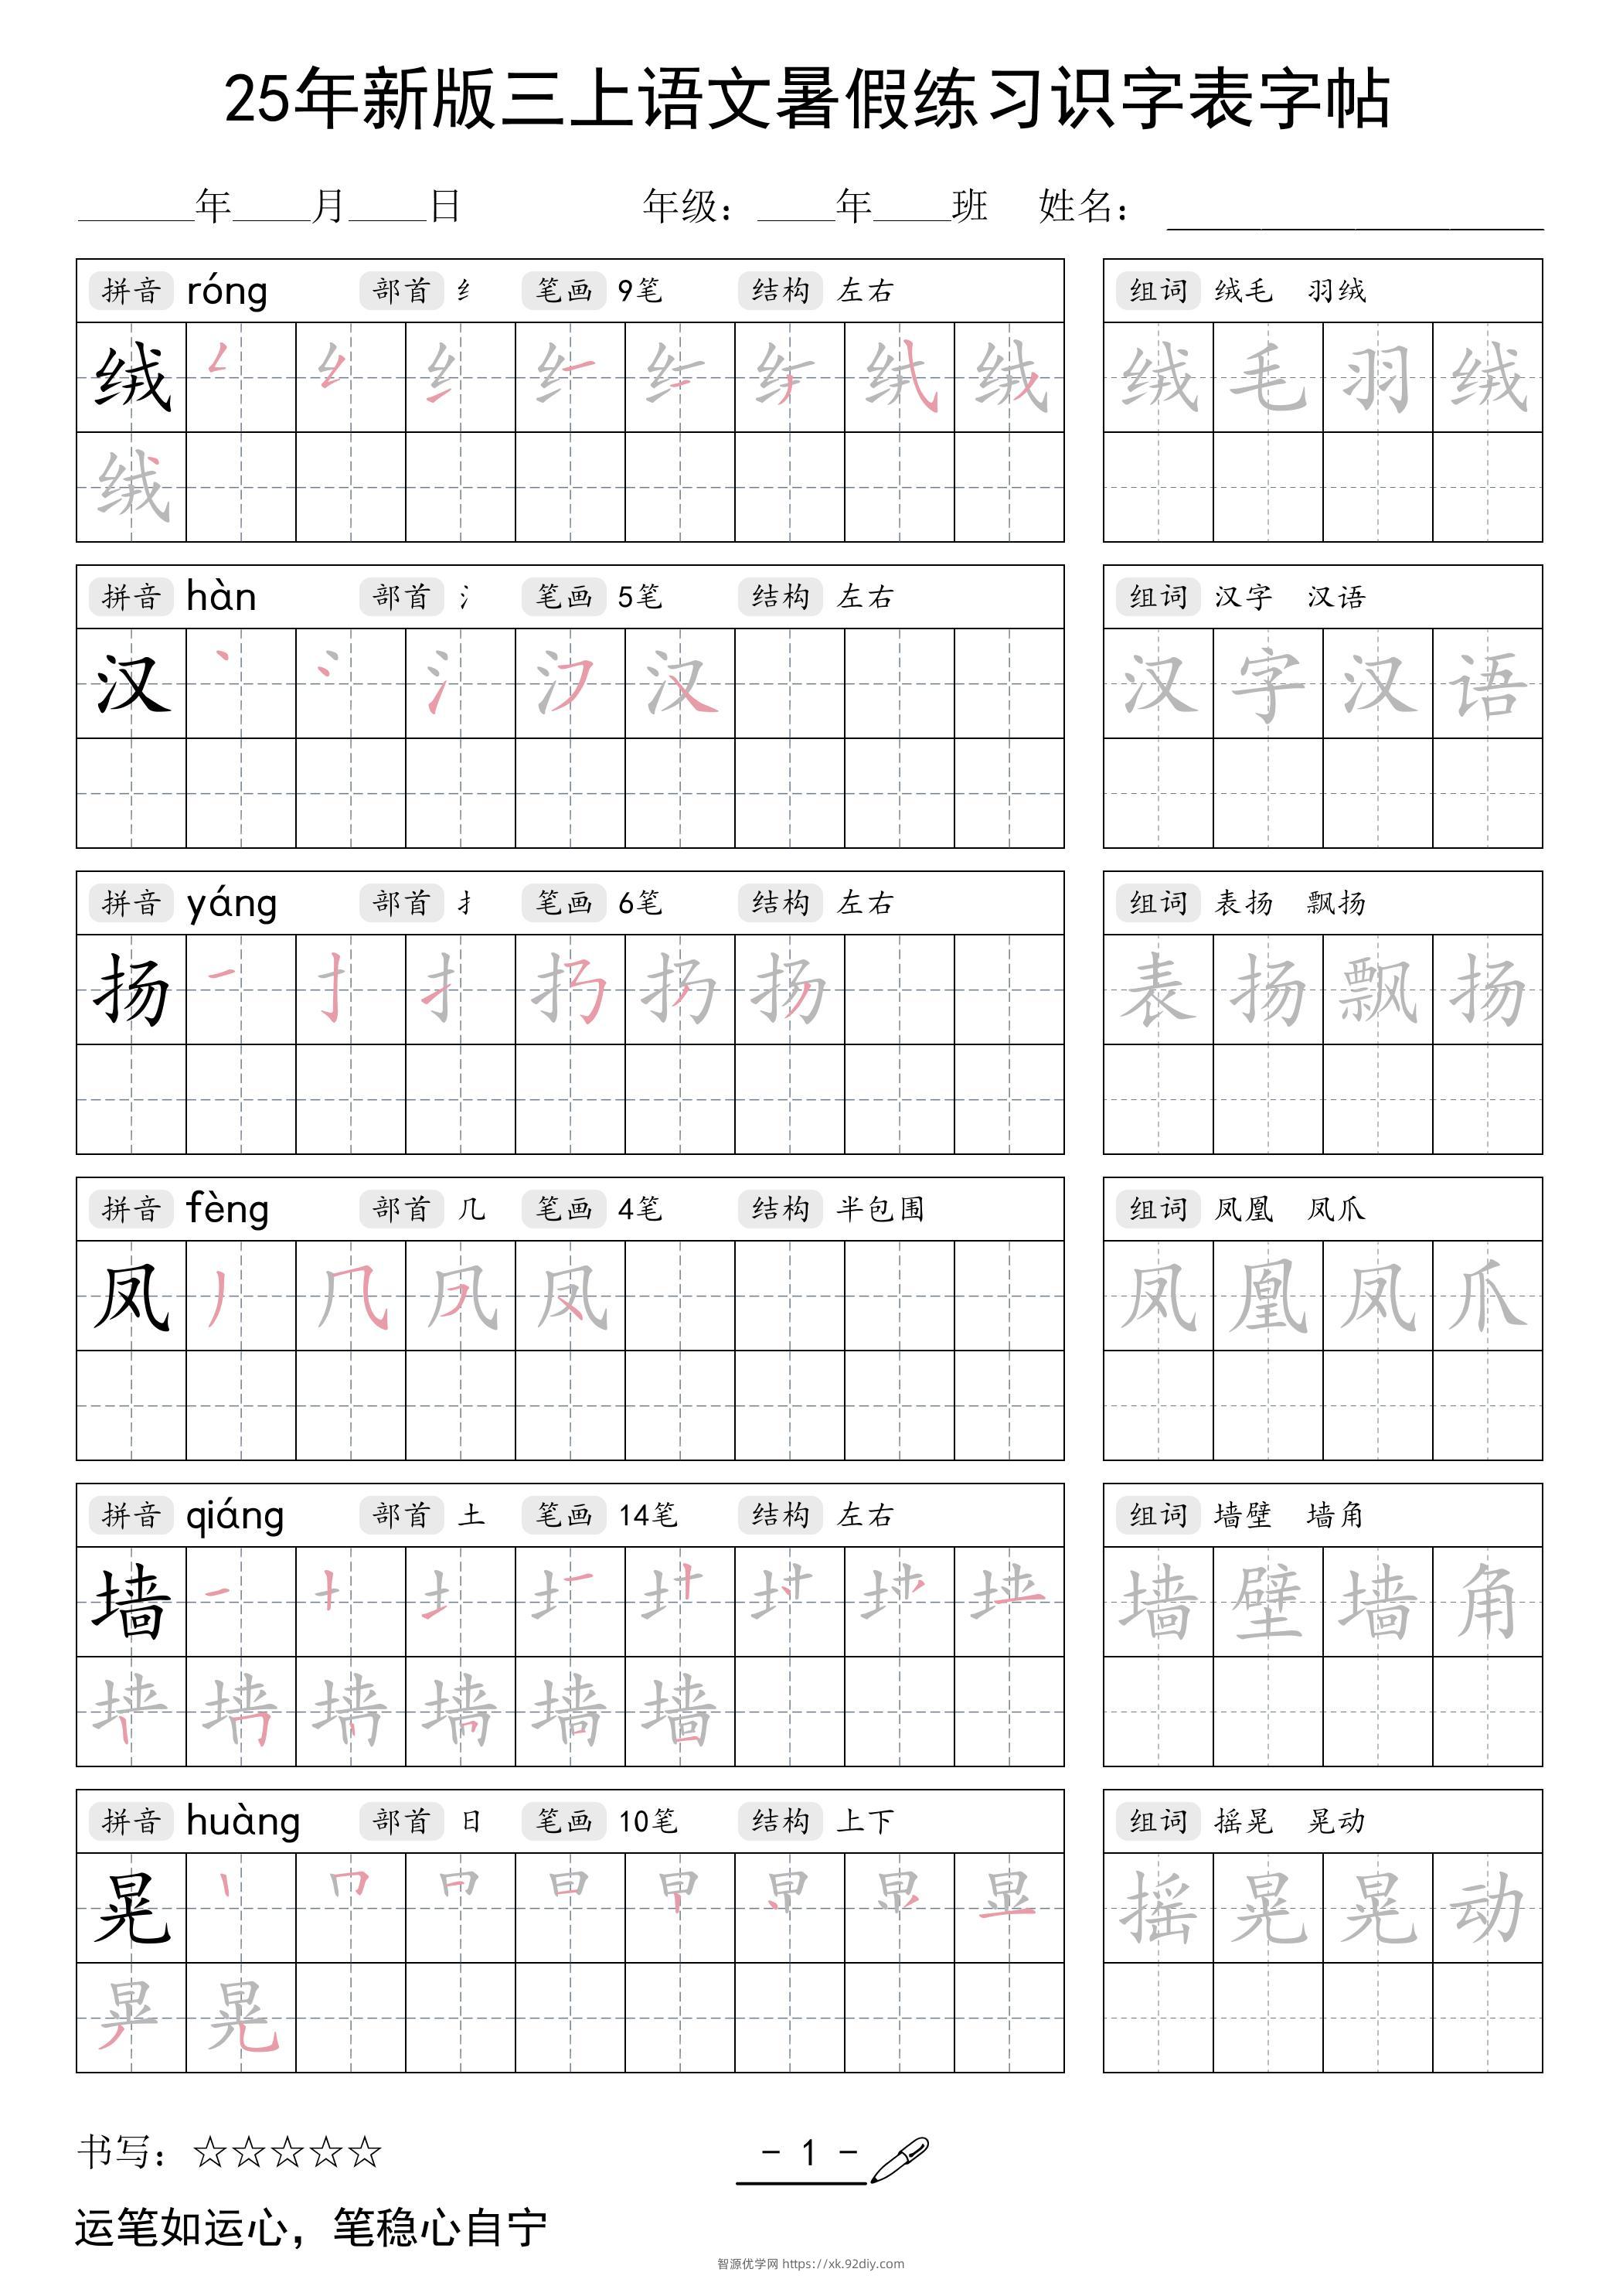 25年新版三上语文暑假练习识字表字帖
______年____月____日 年级：____年____班 姓名：____________________
拼音 róng 部首 纟 笔画 9笔 结构 左右
绒
绒
组词 绒毛 羽绒
绒毛羽绒
拼音 hàn 部首 氵 笔画 5笔 结构 左右
汉
组词 汉字 汉语
汉字汉语
拼音 yáng 部首 扌 笔画 6笔 结构 左右
扬
组词 表扬 飘扬
表扬飘扬
拼音 fèng 部首 几 笔画 4笔 结构 半包围
凤
组词 凤凰 凤爪
凤凰凤爪
拼音 qiáng 部首 土 笔画 14笔 结构 左右
墙
墙
组词 墙壁 墙角
墙壁墙角
拼音 huàng 部首 日 笔画 10笔 结构 上下
晃
晃
组词 摇晃 晃动
摇晃晃动
书写：☆☆☆☆☆
- 1 -
运笔如运心，笔稳心自宁
智源优学网 https://xk.92diy.com